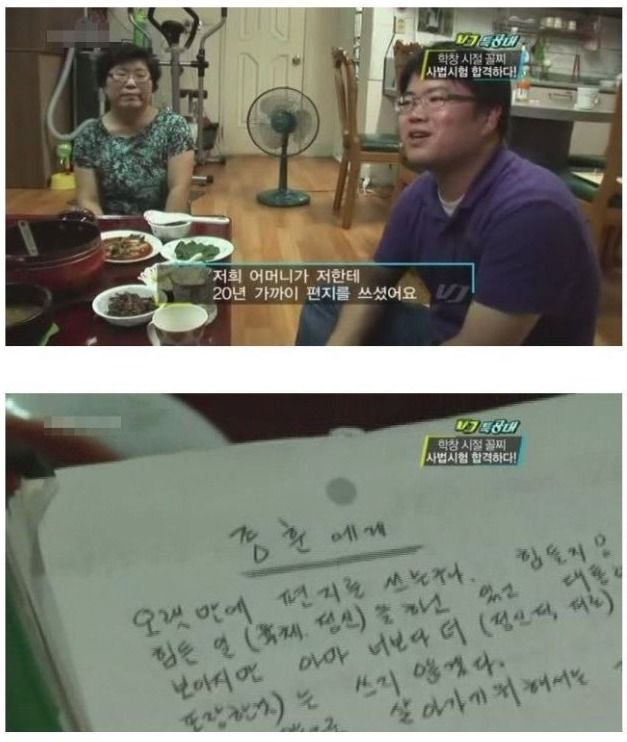 VJ 특공대
학창 시절 꼴찌
사법시험 합격하다!
저희 어머니가 저한테
20년 가까이 편지를 쓰셨어요
VJ
VJ 특공대
학창 시절 꼴찌
사법시험 합격하다!
정환에게
오랫만에 편지를 쓰는구나. 힘들지
힘든 일 (육체. 정신)을 하면
보아지만 아마 너보다 더 (정신적,
는 쓰지 않겠다.
살아가기 위해서는